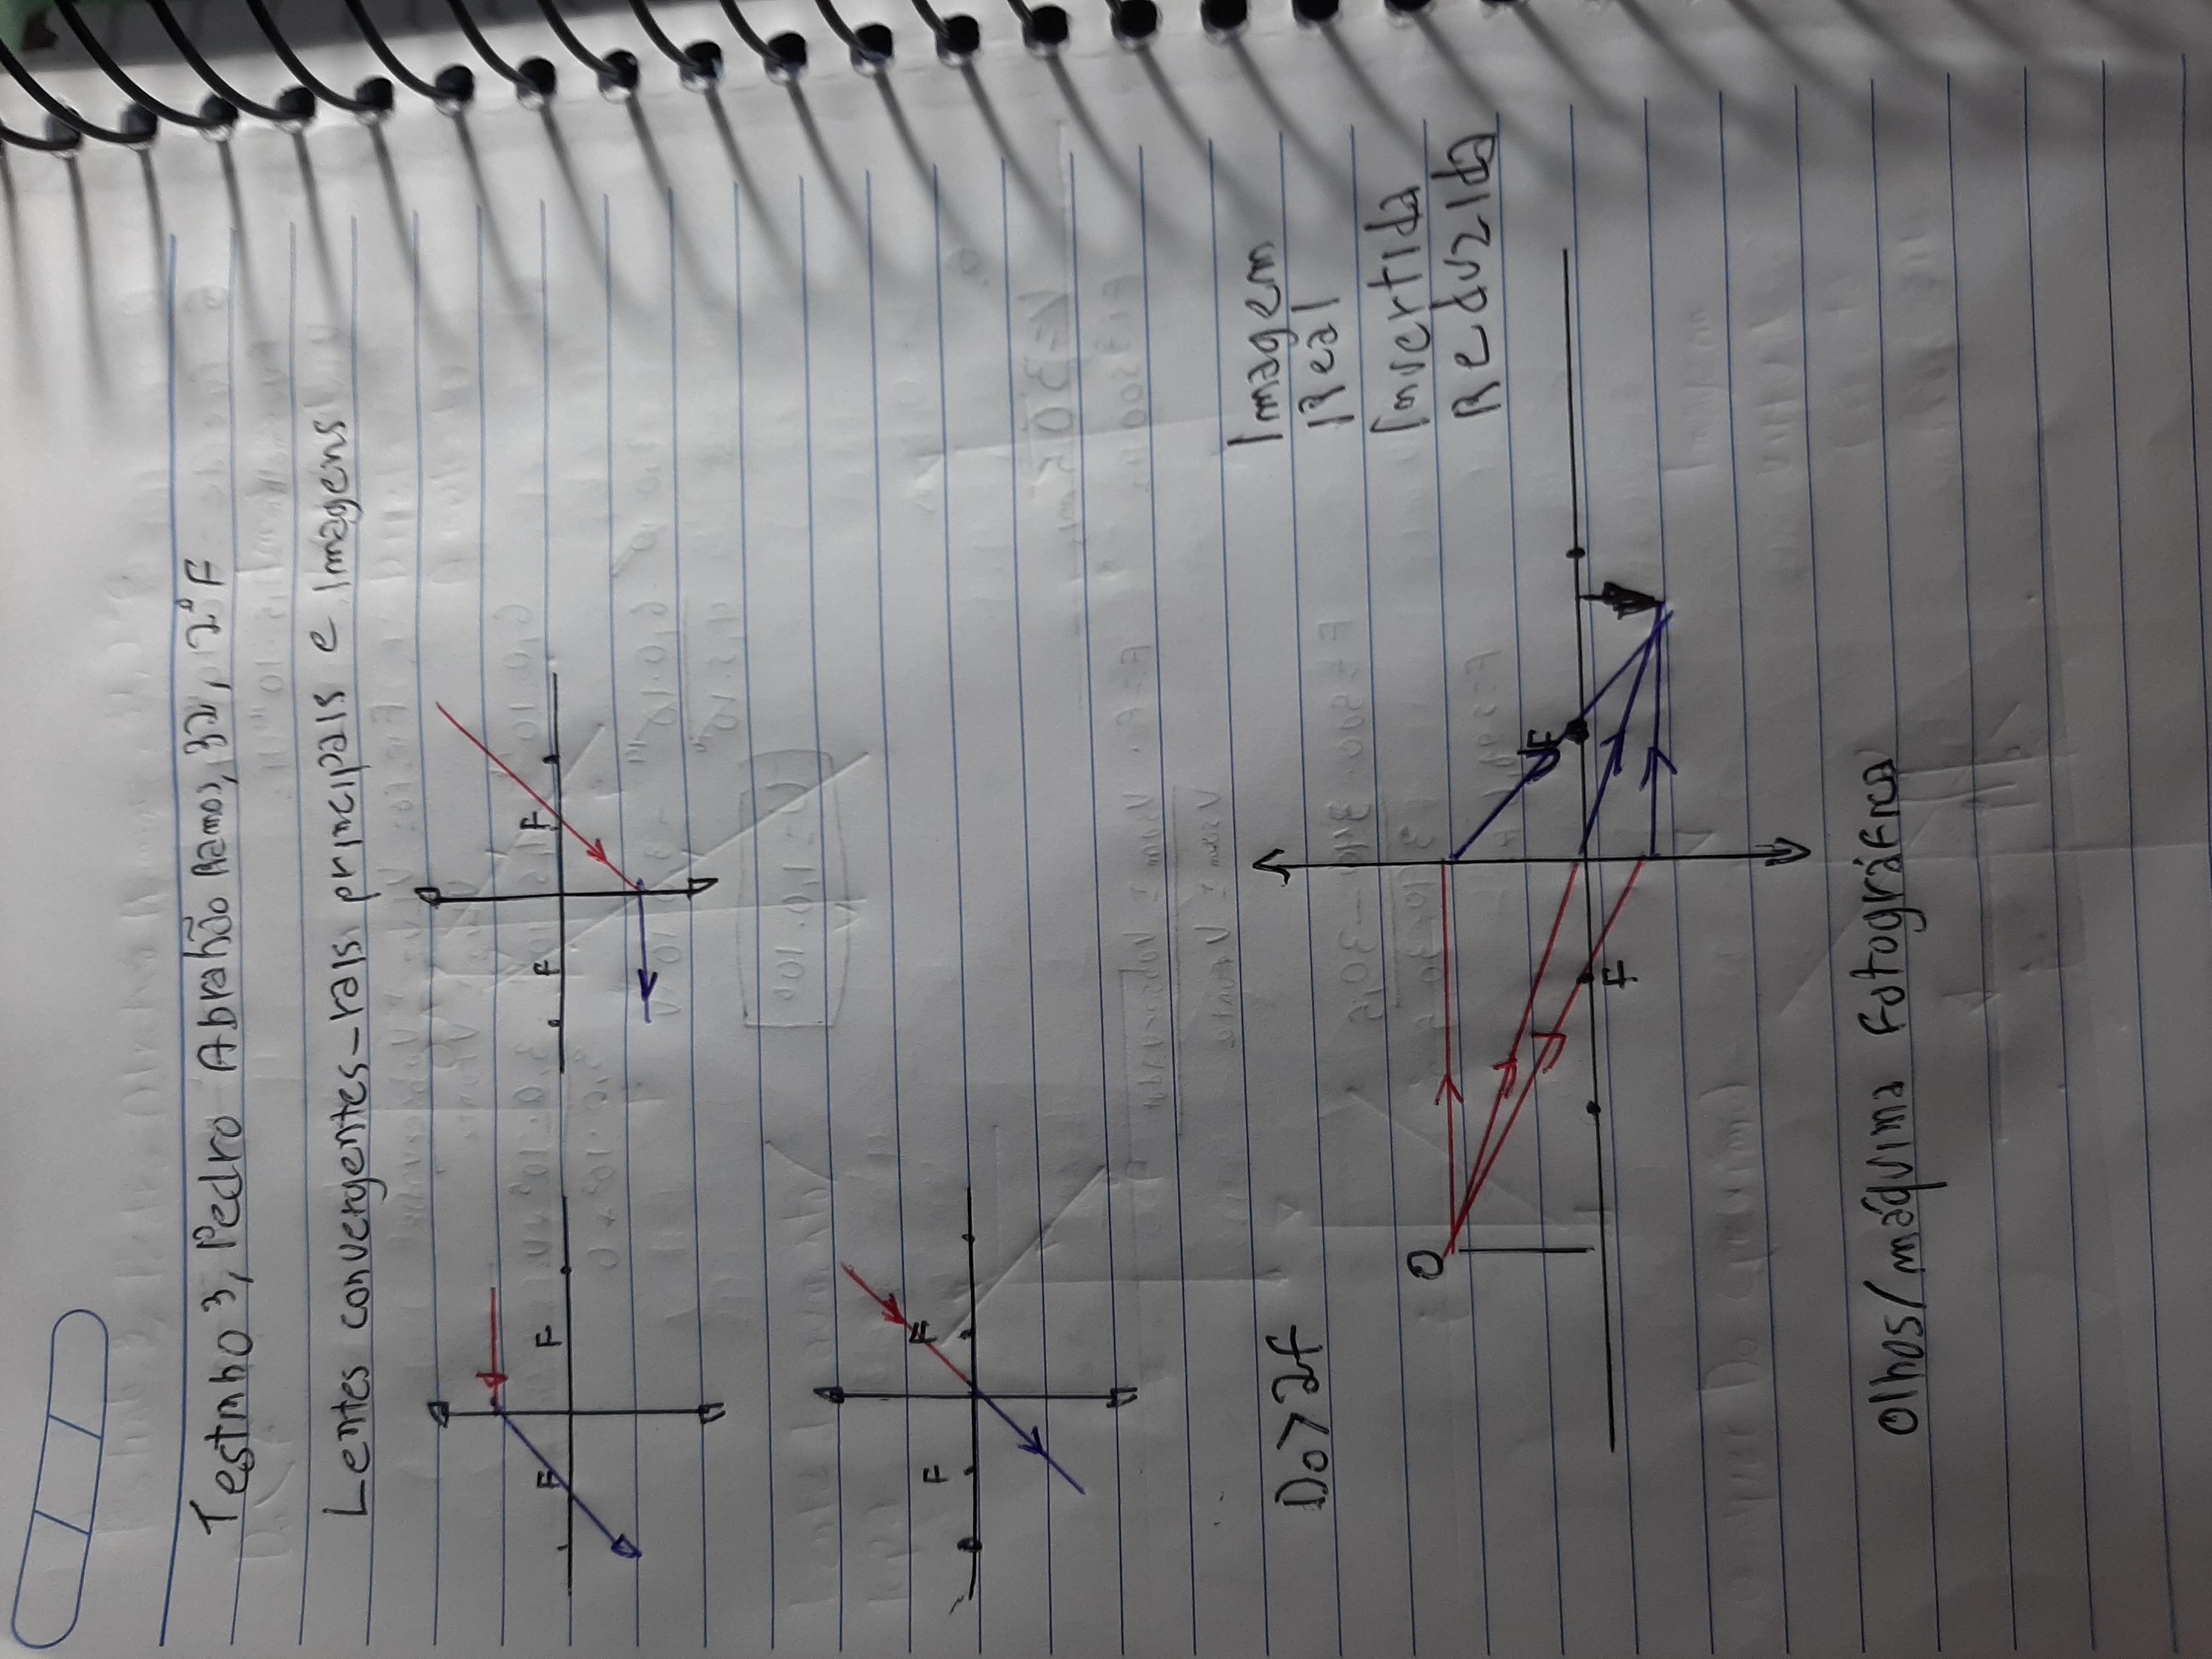 Testinho 3, Pedro Abrahão Ramos, 32, 2º F
Lentes convergentes-rais principais e Imagens
F F
F F
F F
Do>2f
Imagem
Real
Invertida
Reduzida
O
F
F
Olhos/máquina fotográfica